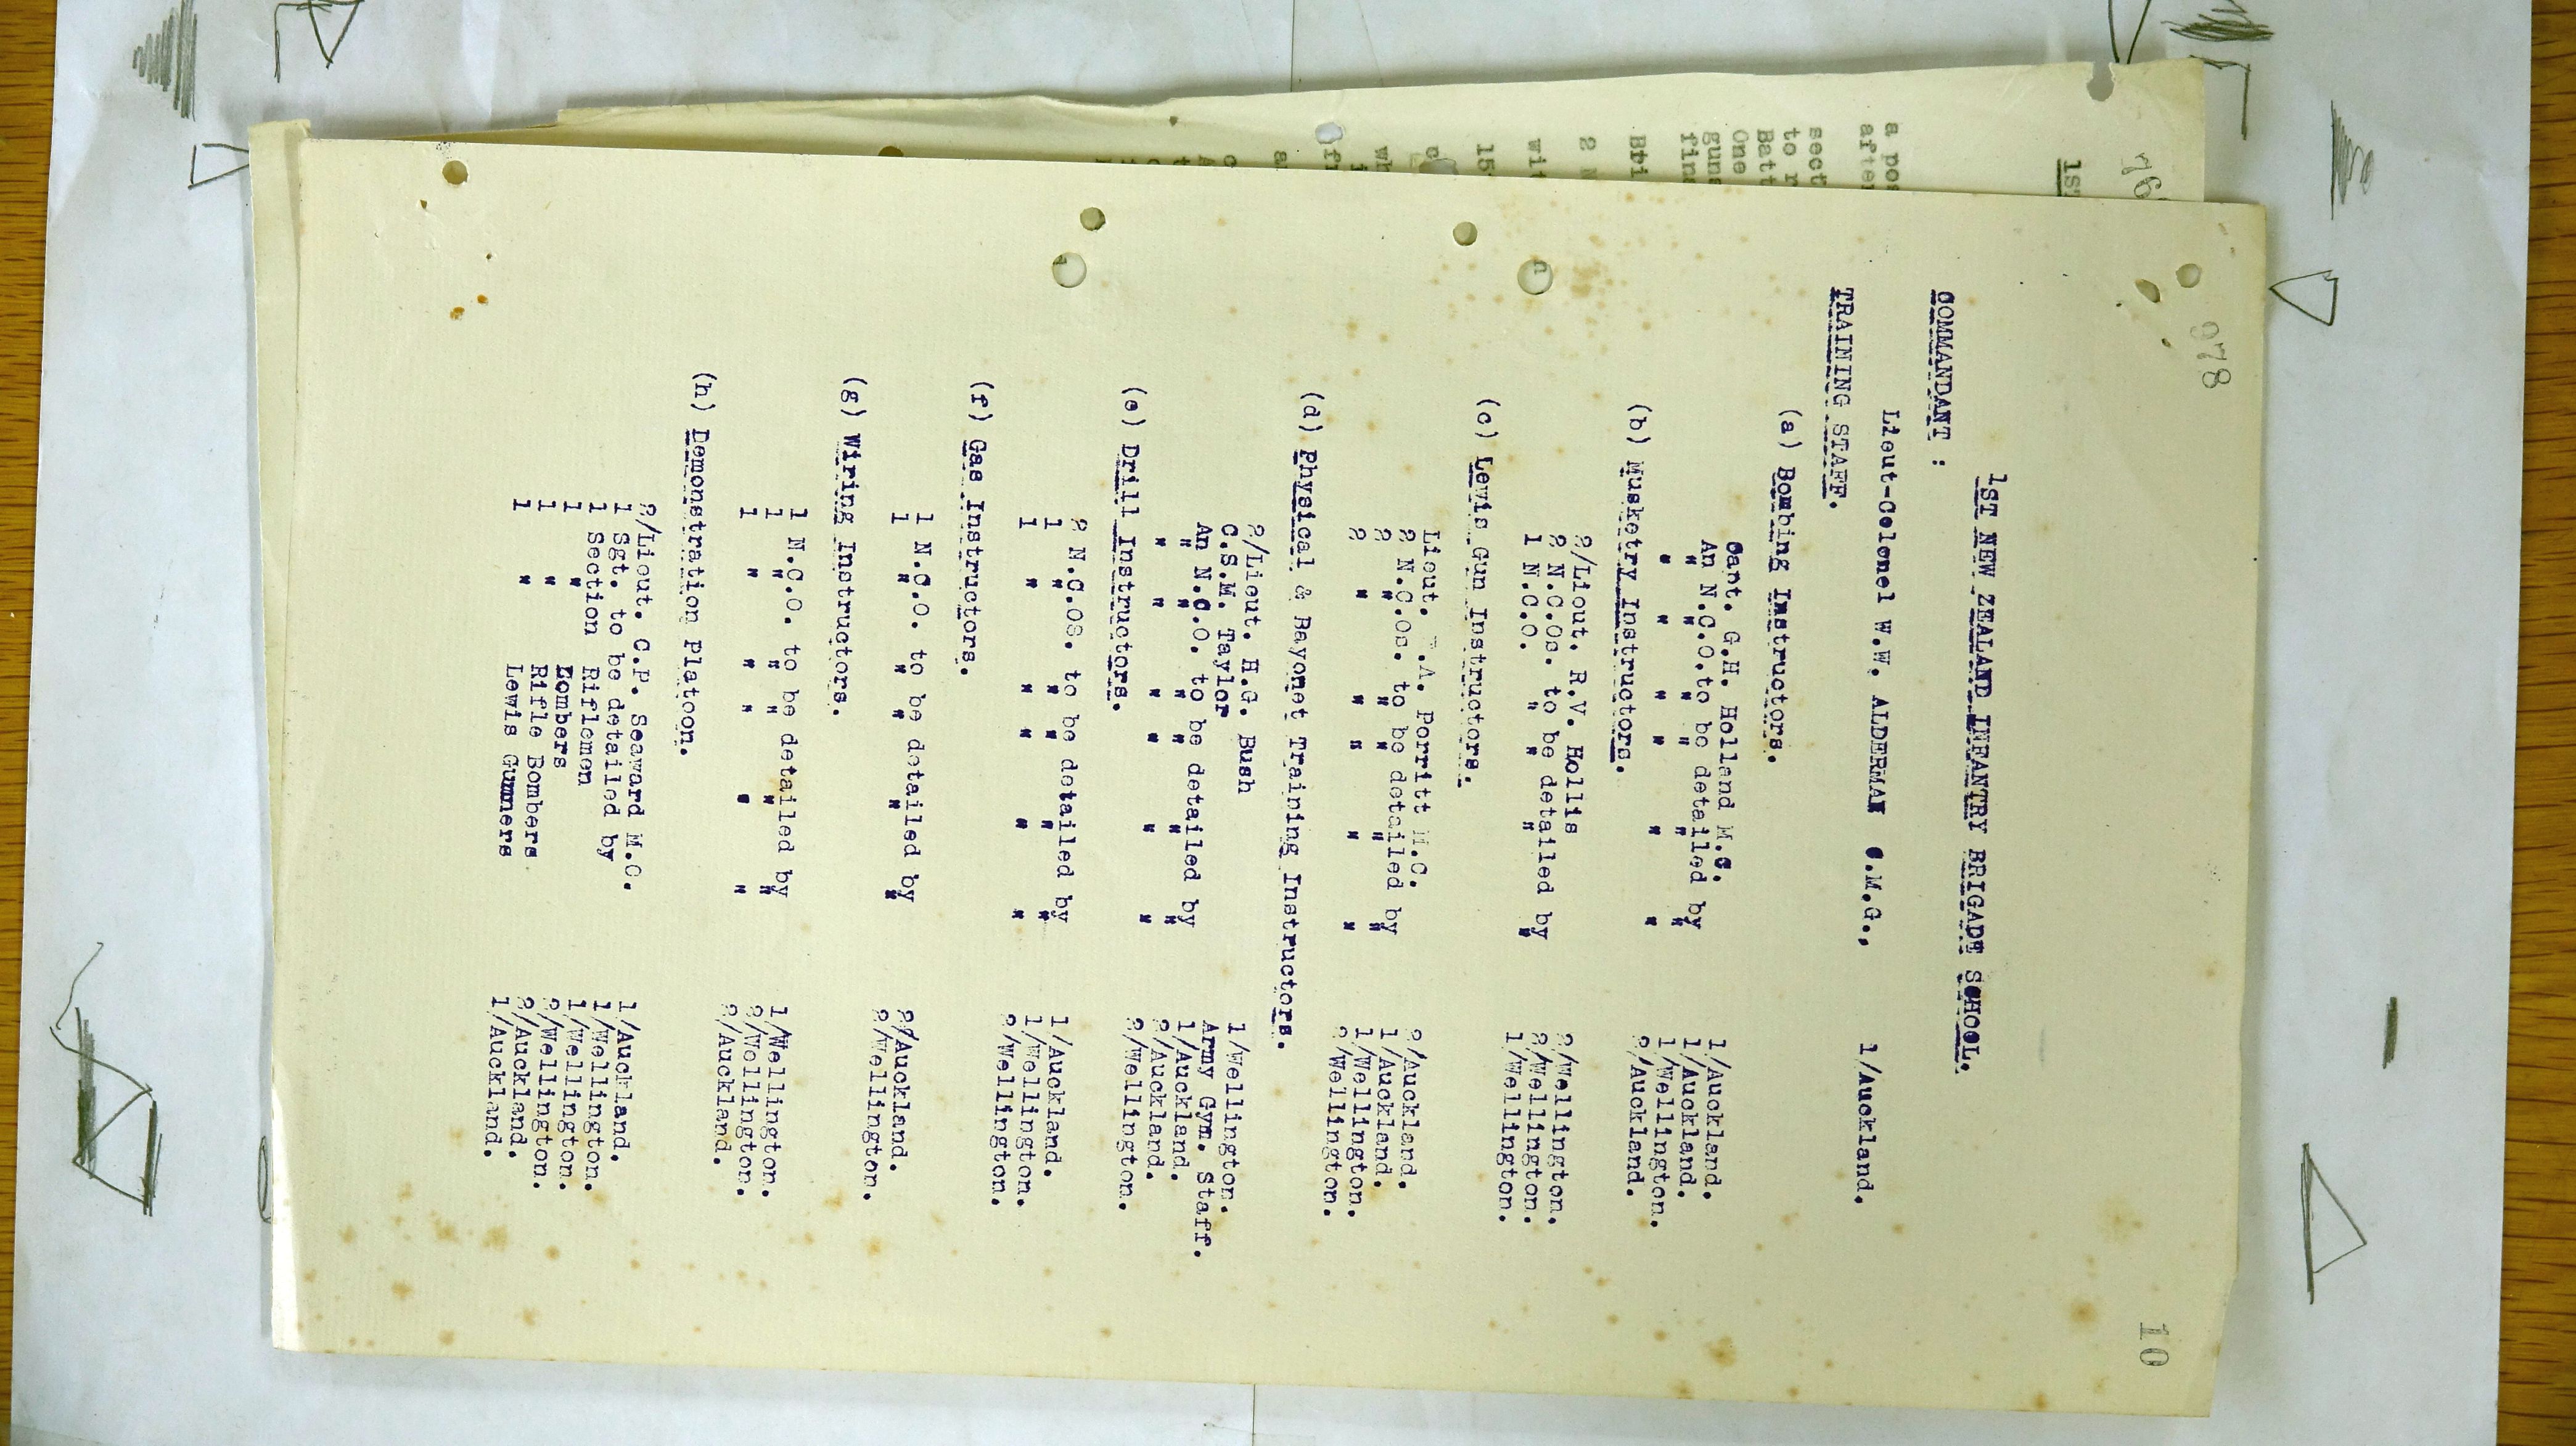 978
10
1ST NEW ZEALAND INFANTRY BRIGADE SCHOOL.
COMMANDANT :
Lieut-Colonel W.W. ALDERMAN C.M.G., 1/Auckland.
TRAINING STAFF.
(a) Bombing Instructors.
Capt. G.H. Holland M.C. 1/Auckland.
An N.C.O. to be detailed by 1/Auckland.
" " " " " " 1/Wellington.
" " " " " " 2/Auckland.
(b) Musketry Instructors.
2/Lieut. R.V. Hollis 2/Wellington.
2 N.C.Os. to be detailed by 2/Wellington.
1 N.C.O. " " " " 1/Wellington.
(c) Lewis Gun Instructors.
Lieut. .A. Porritt M.C. 2/Auckland.
2 N.C.Os. to be detailed by 1/Auckland.
2 " " " " " 1/Wellington.
2 " " " " " 2/Wellington.
(d) Physical & Bayonet Training Instructors.
2/Lieut. H.G. Bush 1/Wellington.
C.S.M. Taylor Army Gym. Staff.
An N.C.O. to be detailed by 1/Auckland.
" " " " " " 2/Auckland.
" " " " " " 2/Wellington.
(e) Drill Instructors.
2 N.C.OS. to be detailed by 1/Auckland.
1 " " " " " 1/Wellington.
1 " " " " " 2/Wellington.
(f) Gas Instructors.
1 N.C.O. to be detailed by 2/Auckland.
1 " " " " " 2/Wellington.
(g) Wiring Instructors.
1 N.C.O. to be detailed by 1/Wellington.
1 " " " " " 2/Wellington.
1 " " " " " 2/Auckland.
(h) Demonstration Platoon.
2/Lieut. C.P. Seaward M.C. 1/Auckland.
1 Sgt. to be detailed by 1/Wellington.
1 Section Riflemen 1/Wellington.
1 " Bombers 2/Wellington.
1 " Rifle Bombers 2/Auckland.
1 " Lewis Gunners 1/Auckland.